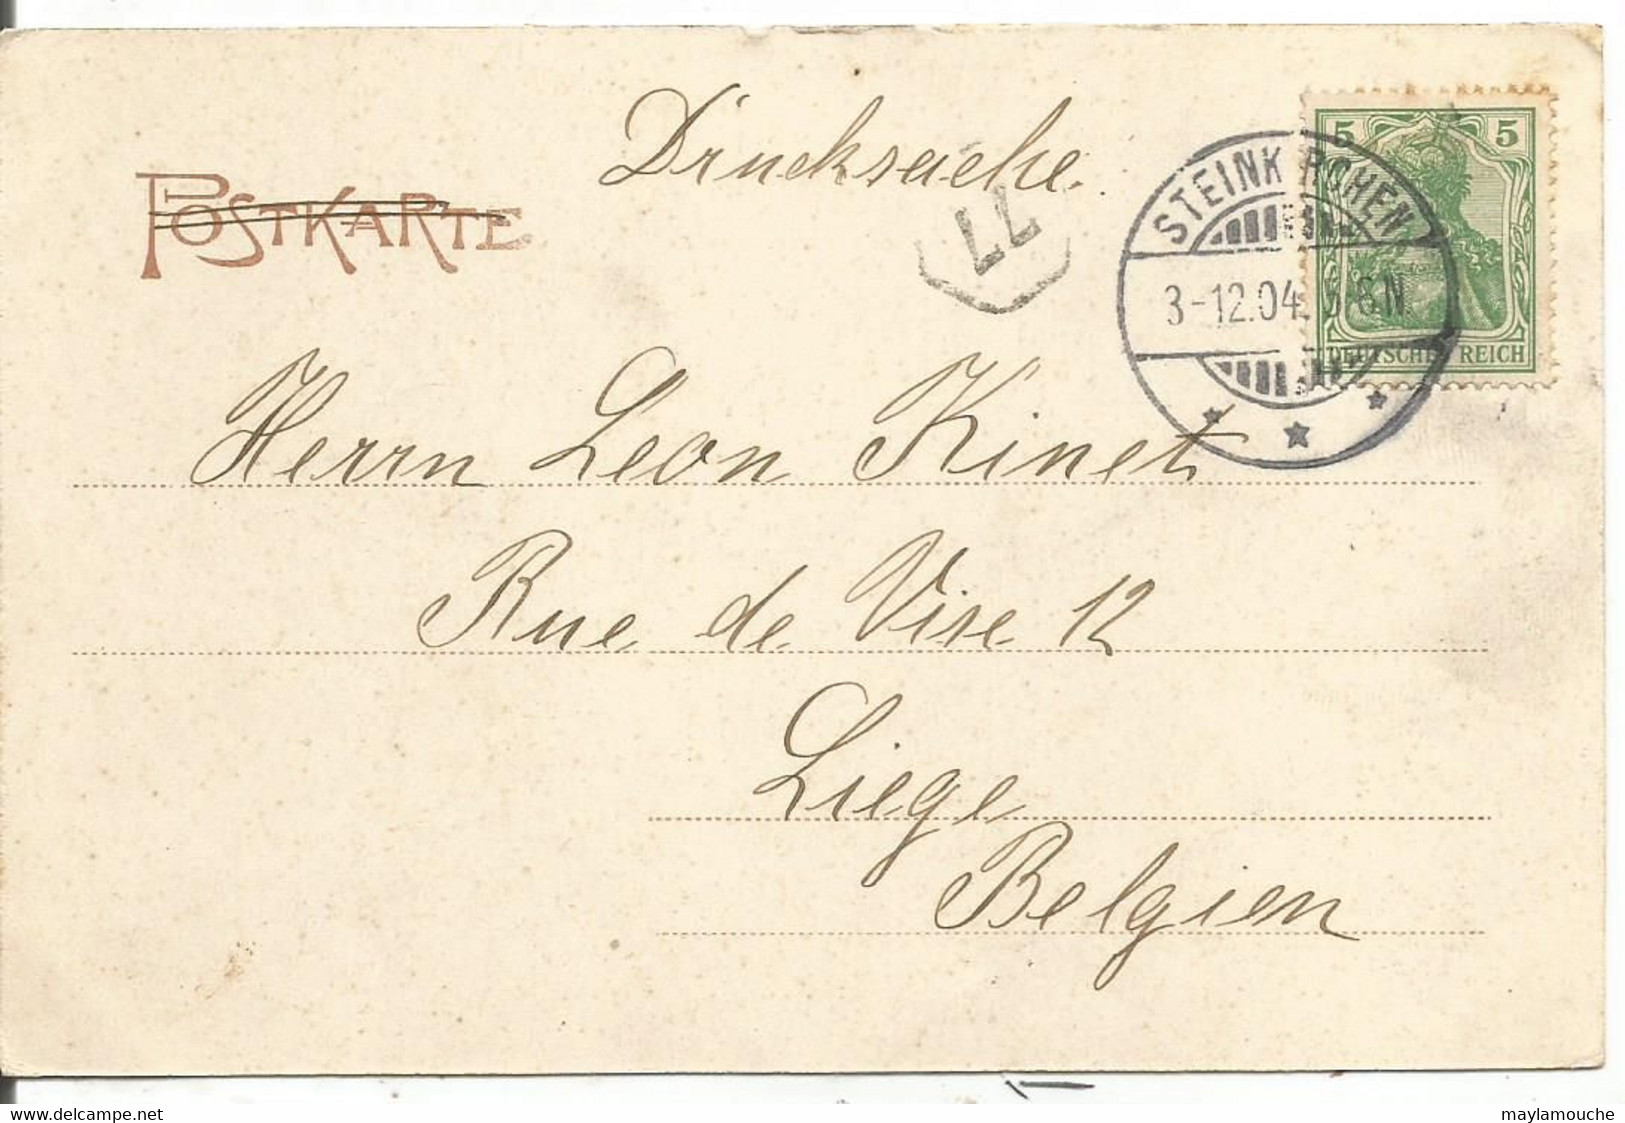 Drucksache.
POSTKARTE
77
STEINKIRCHEN
3-12.04. 5-6N
5 5
DEUTSCHES REICH
Herrn Leon Kinet
Rue de Vise 12
Liege
Belgien
www.delcampe.net
maylamouche